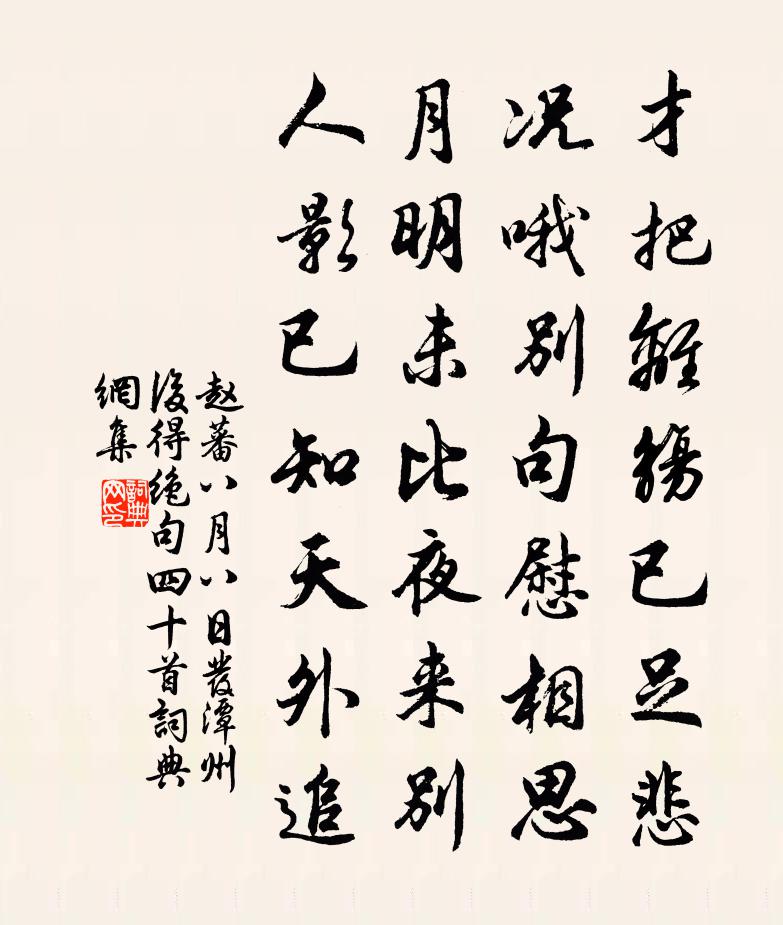 才把離觴已足悲
況哦別句慰相思
月明未比夜来別
人影已知天外追
赵蕃八月八日發潭州
後得絶句四十首詞典
網集
詞典網印